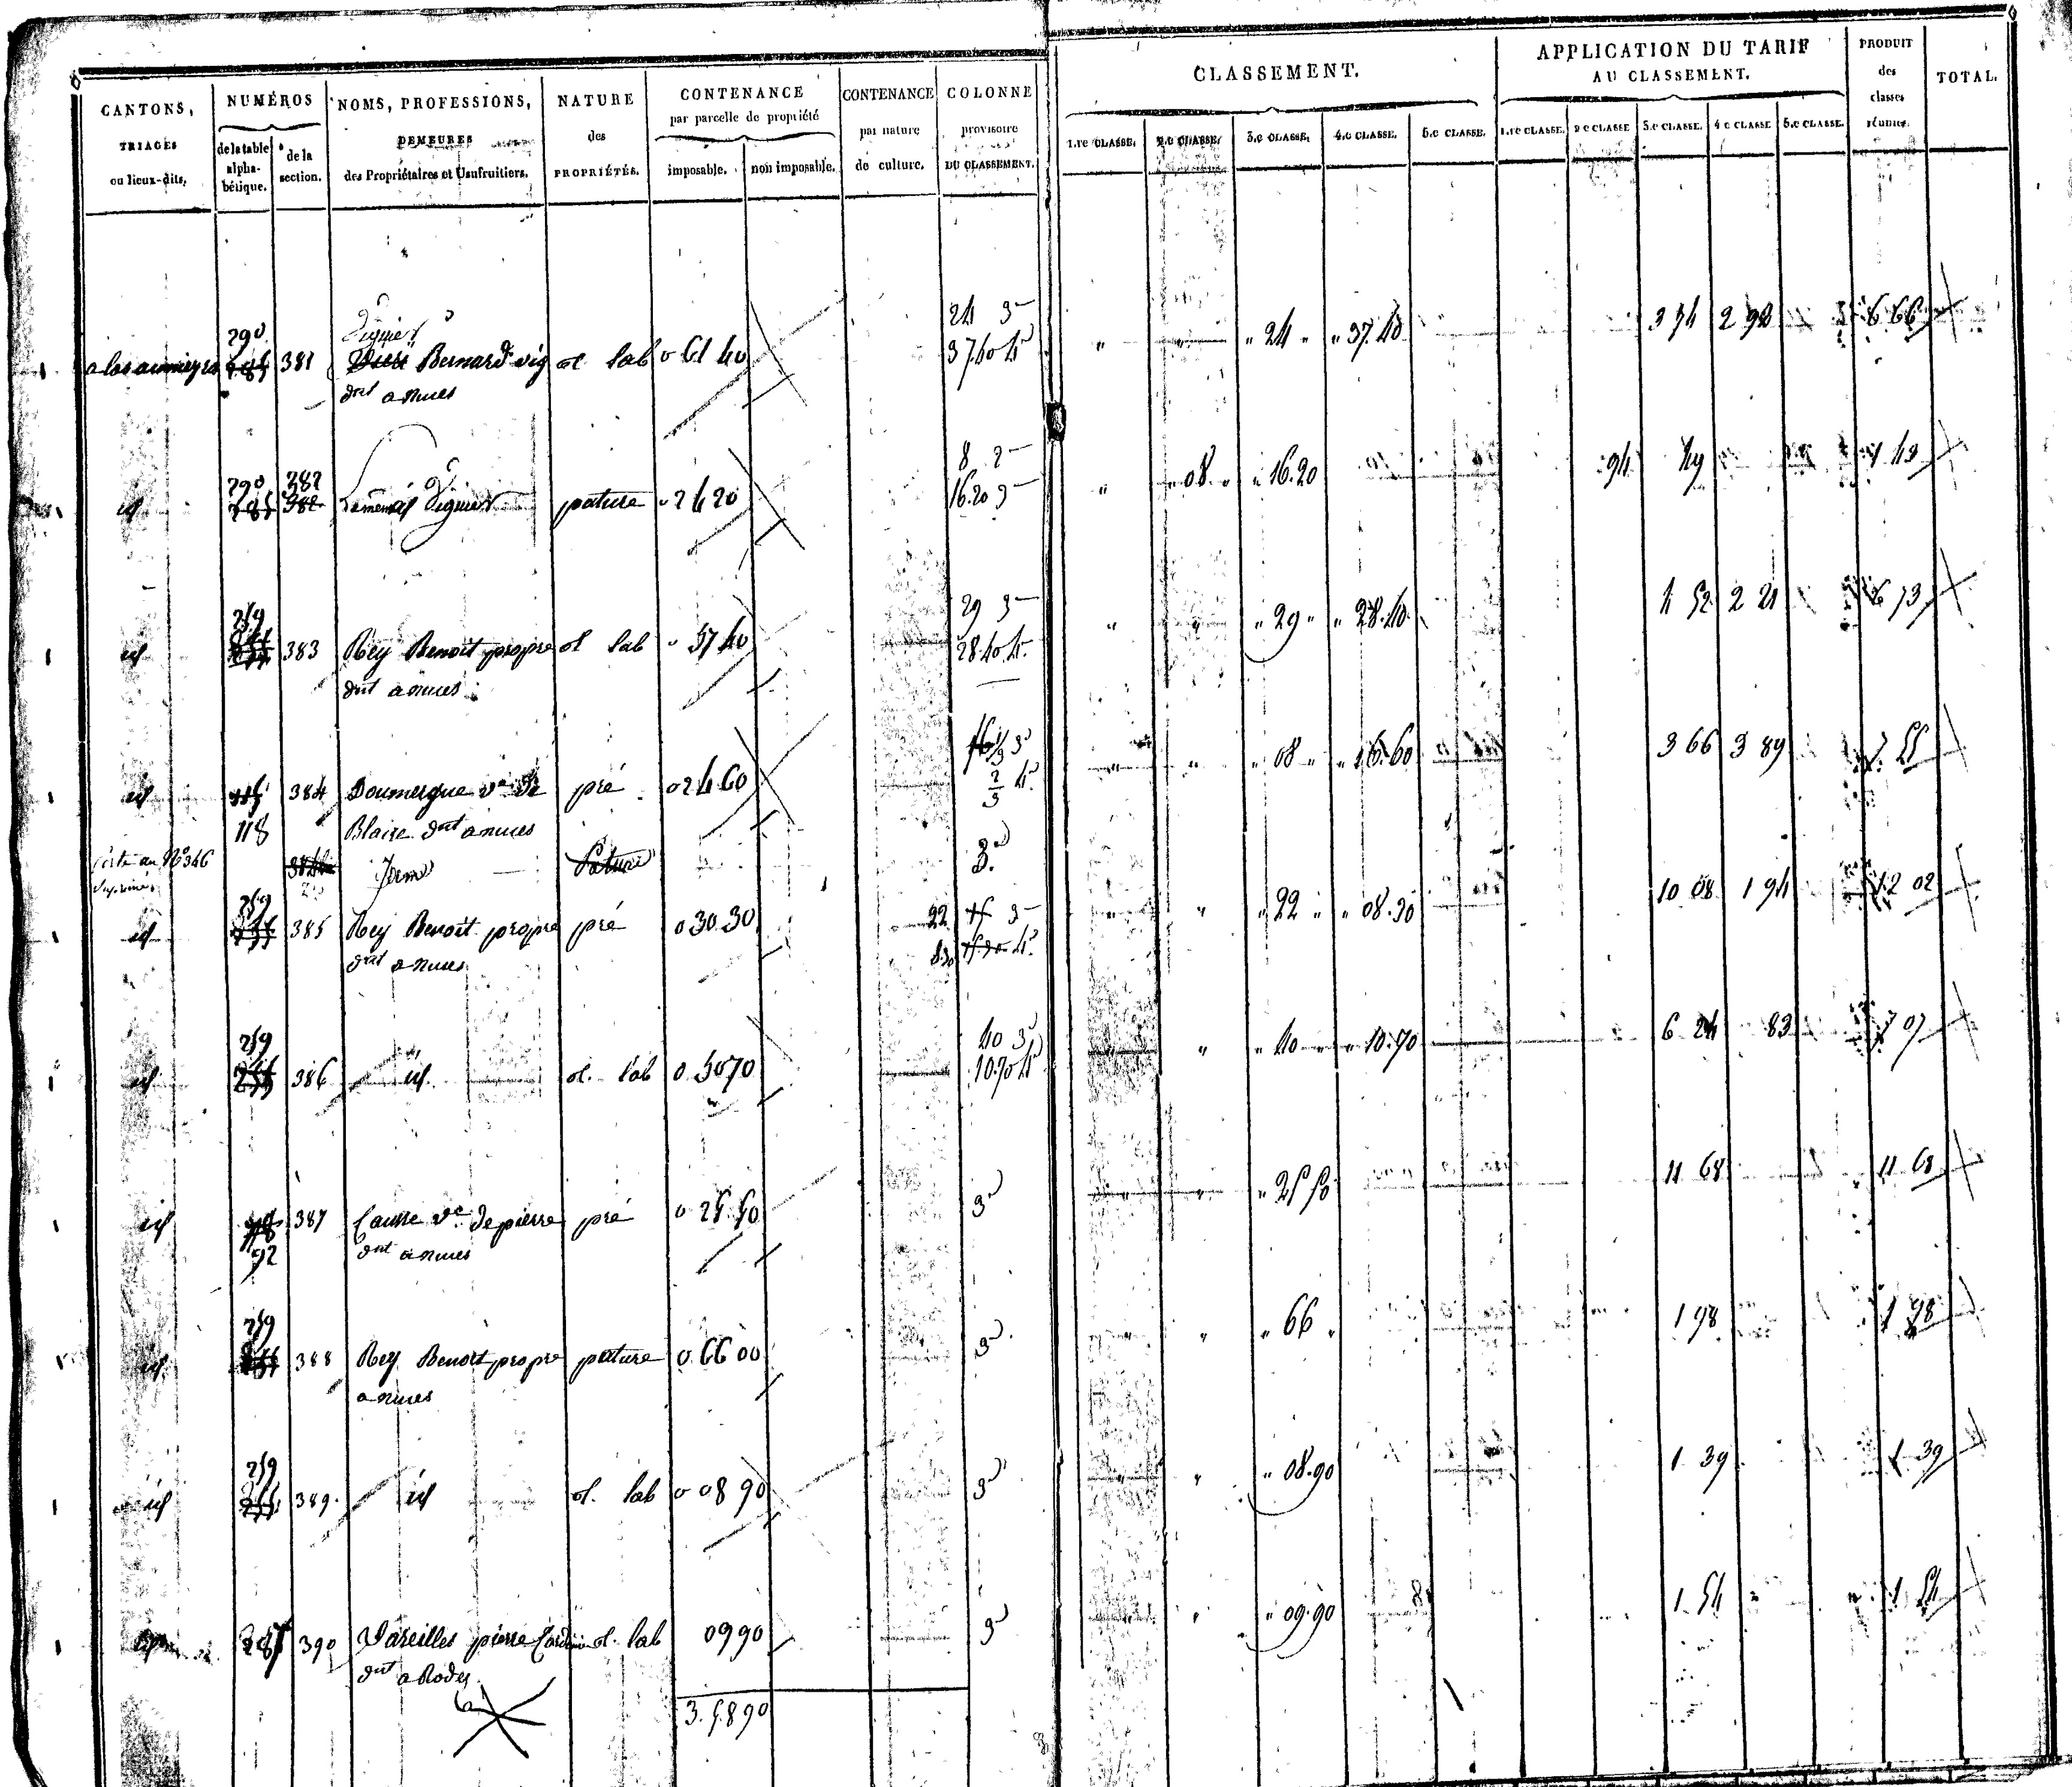 CLASSEMENT.
APPLICATION DU TARIF
AU CLASSEMENT.
PRODUIT
des
classes
réunies.
TOTAL.
CANTONS,
TRIAGES
ou lieux-dits,
NUMÉROS
de la table alpha-bétique.
de la section.
NOMS, PROFESSIONS,
DEMEURES
des Propriétaires et Usufruitiers.
NATURE
des
PROPRIÉTÉS.
CONTENANCE
par parcelle de propriété
imposable.
non imposable.
CONTENANCE
par nature
de culture.
COLONNE
provisoire
DU CLASSEMENT.
1.re CLASSE. 2.e CLASSE. 3.e CLASSE. 4.e CLASSE. 5.e CLASSE.
1.re CLASSE. 2 e CLASSE 3.e CLASSE. 4 e CLASSE 5.e CLASSE.
290 Viguier 24 3
381 Bernard vig ol lab 0 61 40 37 40 4 " " 24 " " 37.40 3 74 2 92 6 66
dnt a nuces
290 382 8 2
id 382 Viguier pature 0 24 20 16.20 3 " " 08 " " 16.20 94 49 1 43
259 29 3
id 383 Rey Benoit propre ol lab 0 57 40 28.40 4 " " " 29 " " 28.40 4 52 2 21 6 73
dnt a nuces
id 384 Doumergue ve de pré 0 24 60 " " " 08 " " 16.60 3 66 3 89 7 55
118 Blaize dnt a nuces
No 346 Idem Pature 3
259 22 3
id 385 Rey Benoit propre pré 0 30 30 8.30 4 " " " 22 " " 08.30 10 08 1 94 12 02
dnt a nuces
259 40 3
id 386 id ol. lab 0 50 70 10.70 4 " " " 40 " " 10.70 6 24 83 7 07
id 387 Causse ve de pierre pré 0 25.50 3 " " " 25 50 11 68 11 68
92 dnt a nuces
259
id 388 Rey Benoit propre pature 0 66 00 3 " " " 66 " 1 98 1 98
a nuces
259
id 389 id ol. lab 0 08 90 3 " " " 08.90 1 39 1 39
id 390 Vareilles pierre ol. lab 09 90 3 " " " 09.90 1 54 1 54
dnt a Rodez
3.58 90